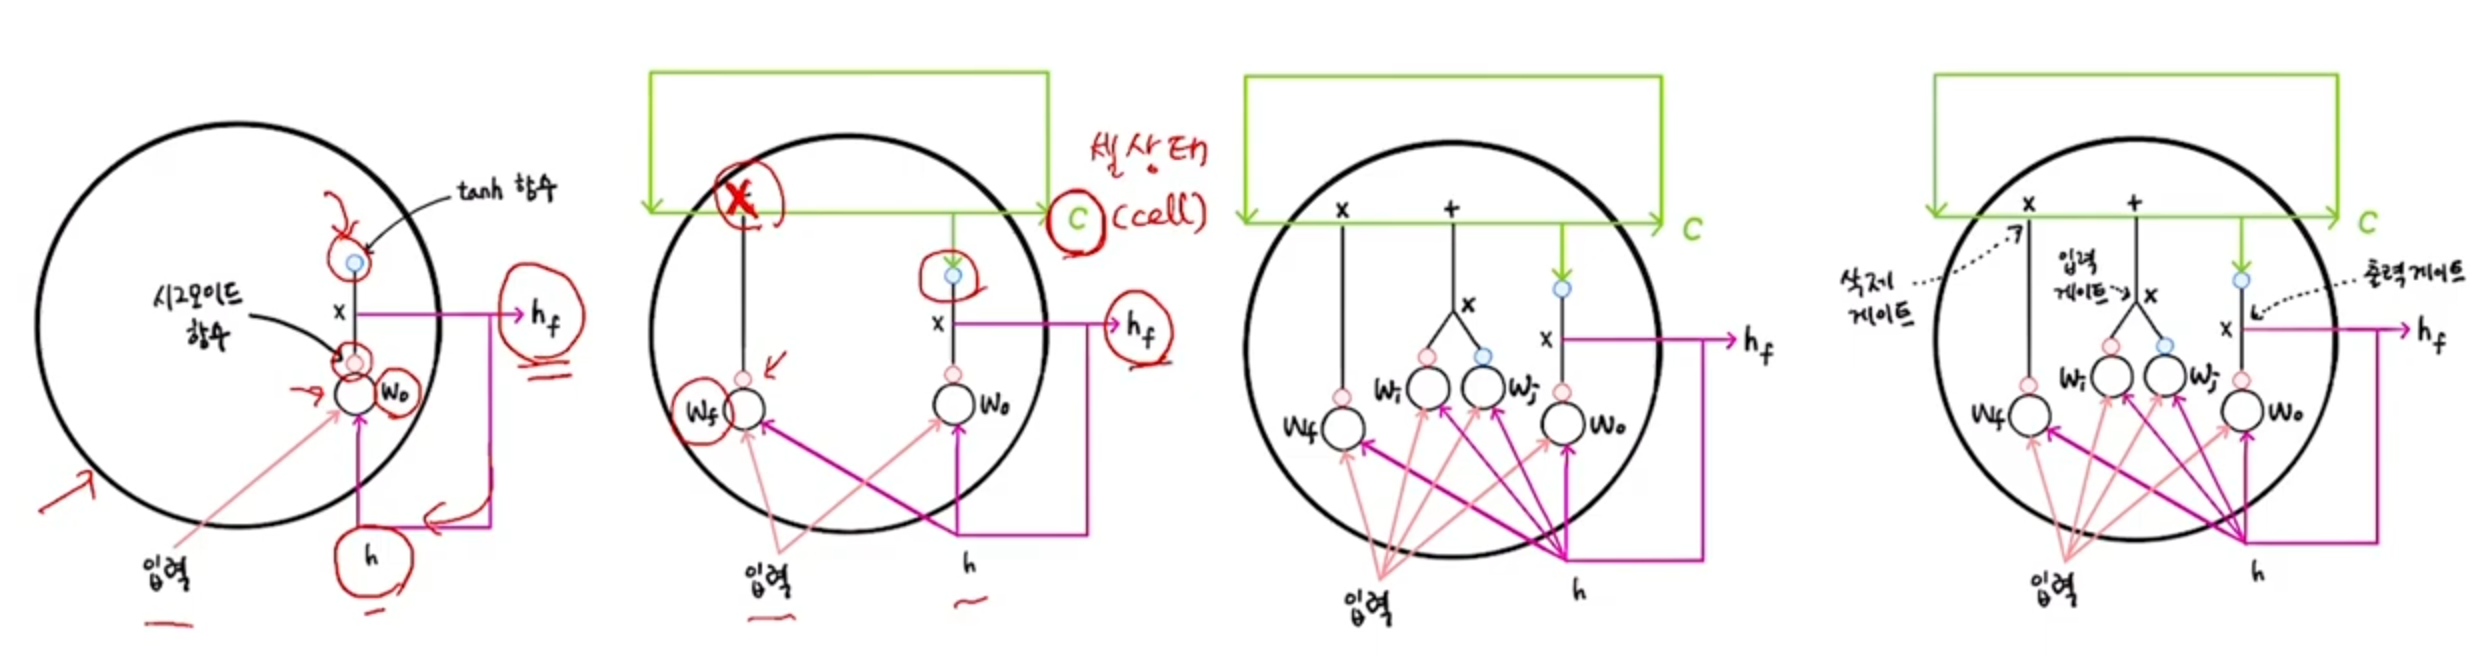 tanh 함수
시그모이드
함수
x
h_f
w_o
입력
h
x
셀 상태
C (cell)
x
h_f
w_f
w_o
입력
h
x
+
C
x
x
h_f
w_i
w_j
w_f
w_o
입력
h
x
+
C
삭제
게이트
입력
게이트
x
출력 게이트
x
h_f
w_i
w_j
w_f
w_o
입력
h